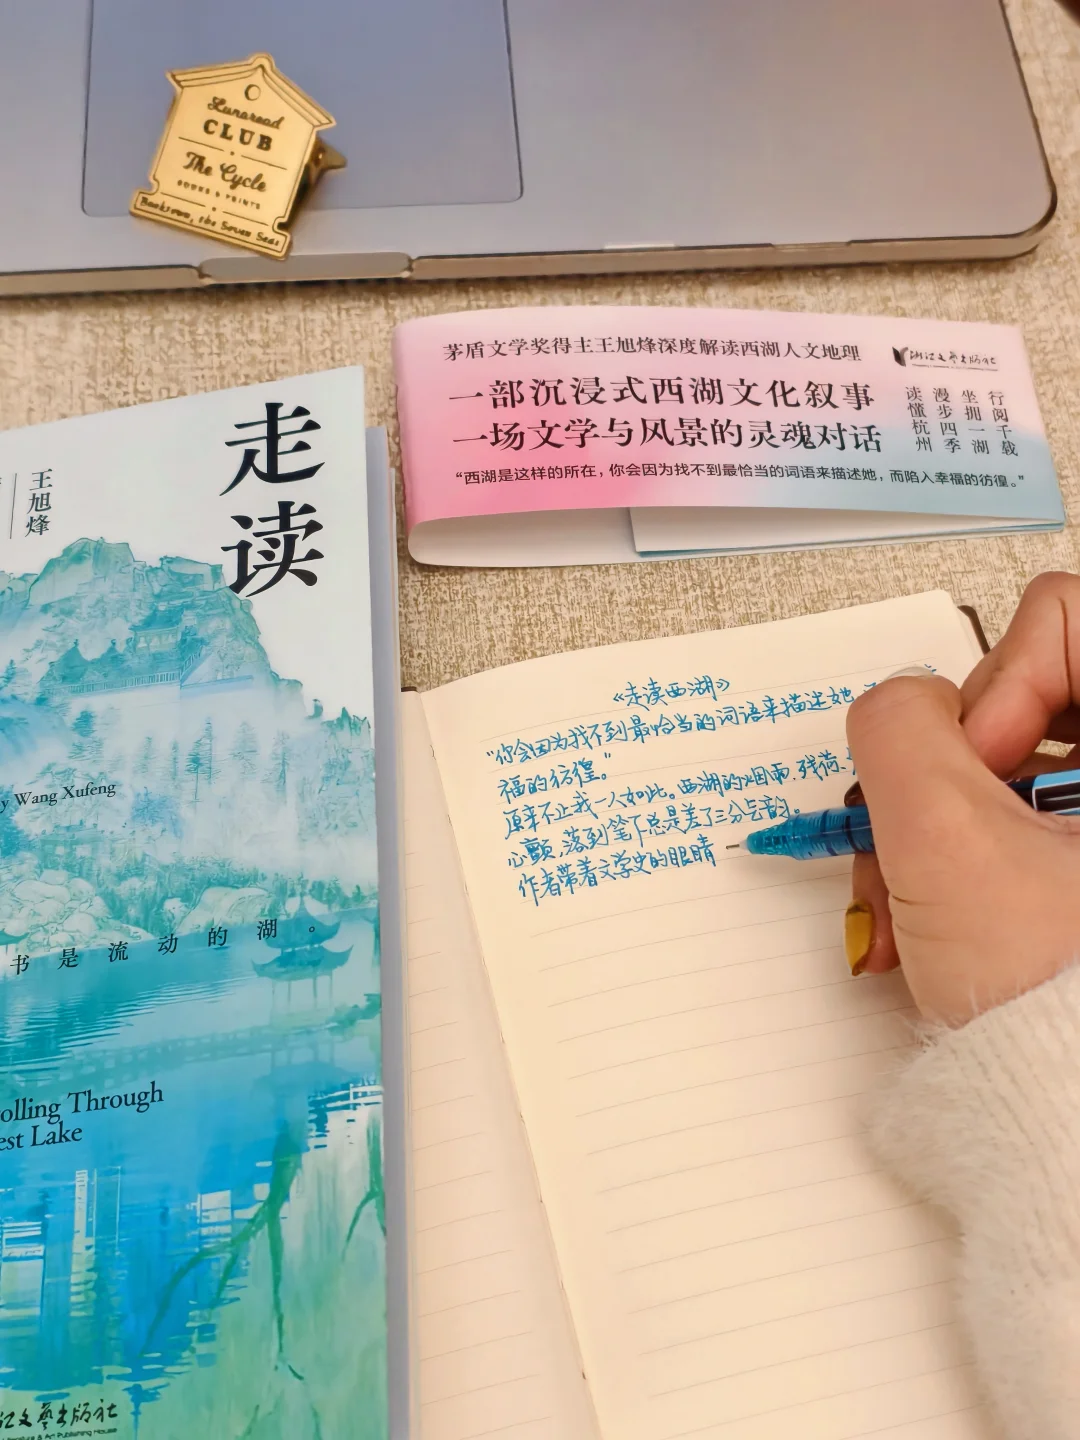 Lunaread
CLUB
The Cycle
BOOKS & PRINTS
Booktown, the Seven Seas
茅盾文学奖得主王旭烽深度解读西湖人文地理
浙江文艺出版社
一部沉浸式西湖文化叙事
一场文学与风景的灵魂对话
行阅千载
坐拥一湖
漫步四季
读懂杭州
“西湖是这样的所在，你会因为找不到最恰当的词语来描述她，而陷入幸福的彷徨。”
走读
王旭烽
y Wang Xufeng
书是流动的湖。
olling Through
est Lake
江文艺出版社
Literature & Art Publishing House
《走读西湖》
“你会因为找不到最恰当的词语来描述她
福的彷徨。”
原来不止我一人如此。西湖的烟雨、残荷、
心颤，落到笔下总是差了三分气韵。
作者带着文学史的眼睛